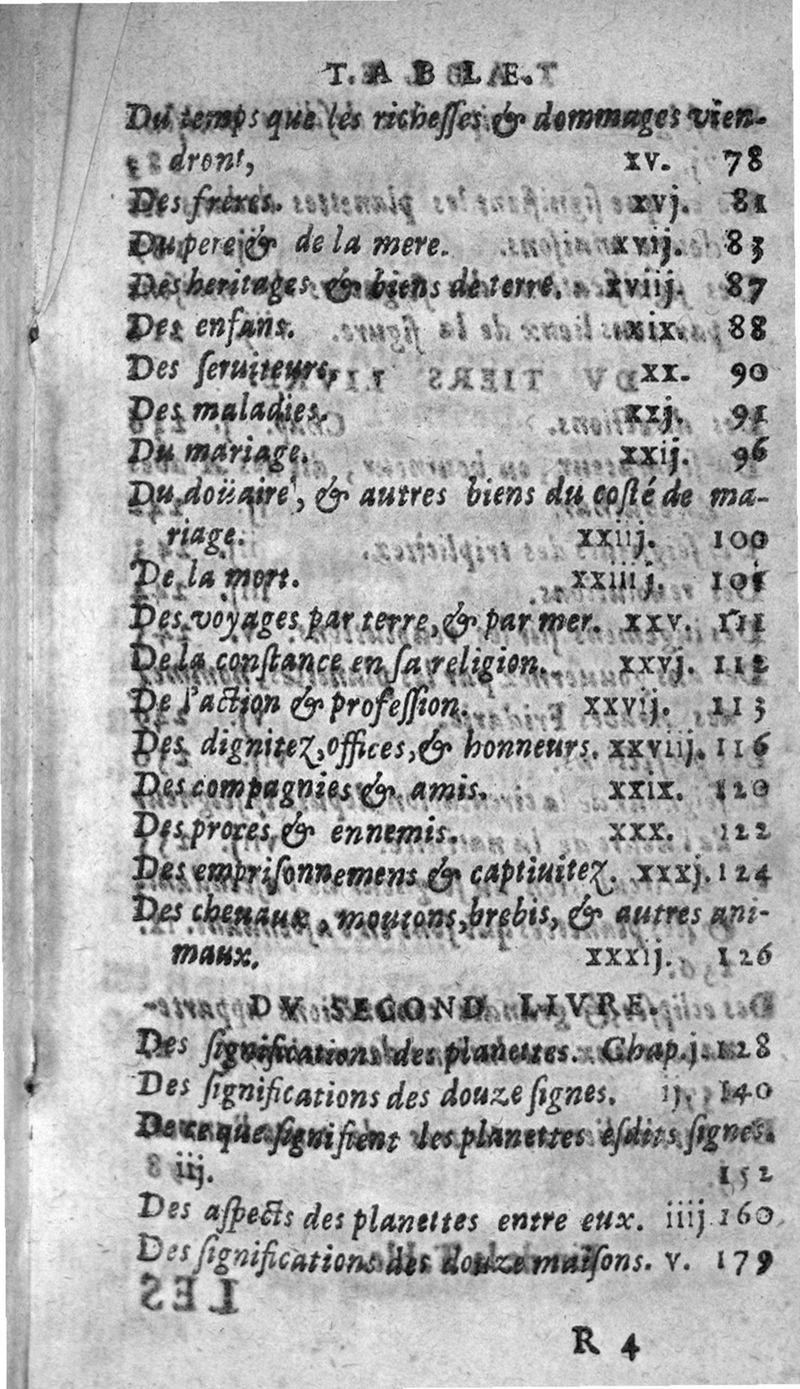 TABLE.
Du temps que les richesses & dommages vien-
dront, xv. 78
Des freres. xvj. 81
Du pere & de la mere. xvij. 83
Des heritages & biens de terre. xviij. 87
Des enfans. xix. 88
Des ſeruiteurs, xx. 90
Des maladies. xxj. 91
Du mariage. xxij. 96
Du doüaire, & autres biens du coſté de ma-
riage. xxiij. 100
De la mort. xxiiij.
Des voyages par terre, & par mer. xxv. 111
De la conſtance en ſa religion. xxvj. 112
De l'action & profeſſion. xxvij. 113
Des dignitez, offices, & honneurs. xxviij. 116
Des compagnies & amis. xxix. 120
Des proces & ennemis. xxx. 122
Des empriſonnemens & captiuitez. xxxj. 124
Des cheuaux, moutons, brebis, & autres ani-
maux. xxxij. 126
DV SECOND LIVRE.
Des ſignifications des planettes. Chap. j. 128
Des ſignifications des douze ſignes. ij. 140
De ce que ſignifient les planettes eſdits ſignes.
iij. 152
Des aſpects des planettes entre eux. iiij 160
Des ſignifications des douze maiſons. v. 179
LES
R 4